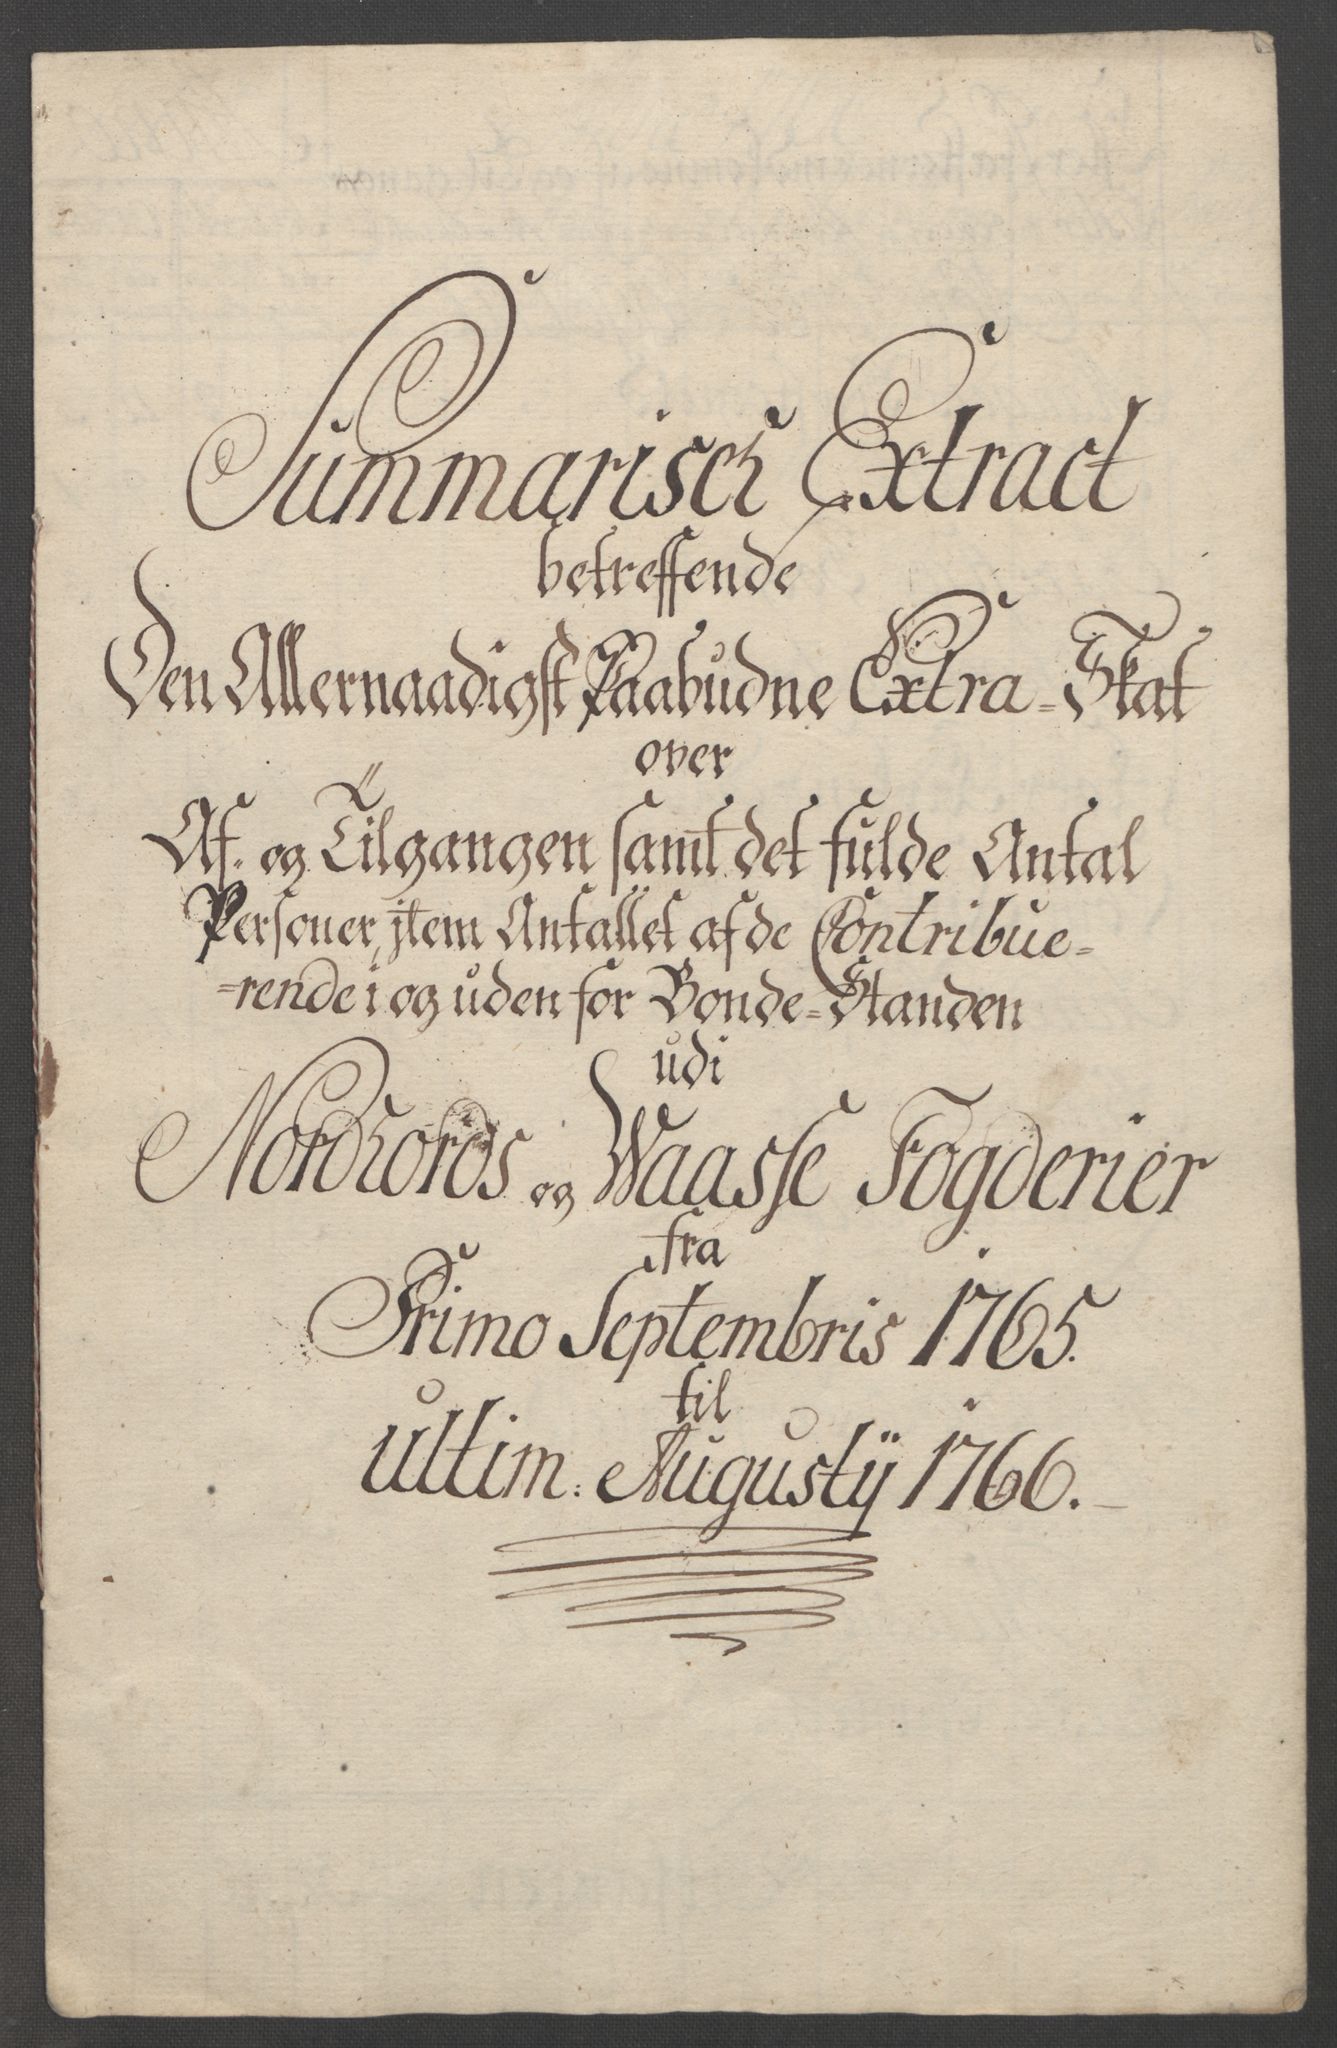 Summarisch Extract
betreffende
Den Allernaadigst Paabudne Extra-Skat
over
Af- og Tilgangen samt det fulde Antal
Personer, jtem Antallet af de Contribue=
=rende i og uden for Bonde-Standen
udi
Nordhords og Waasse Fogderier
fra
Primo Septembris 1765.
til
ultim: Augustij 1766.